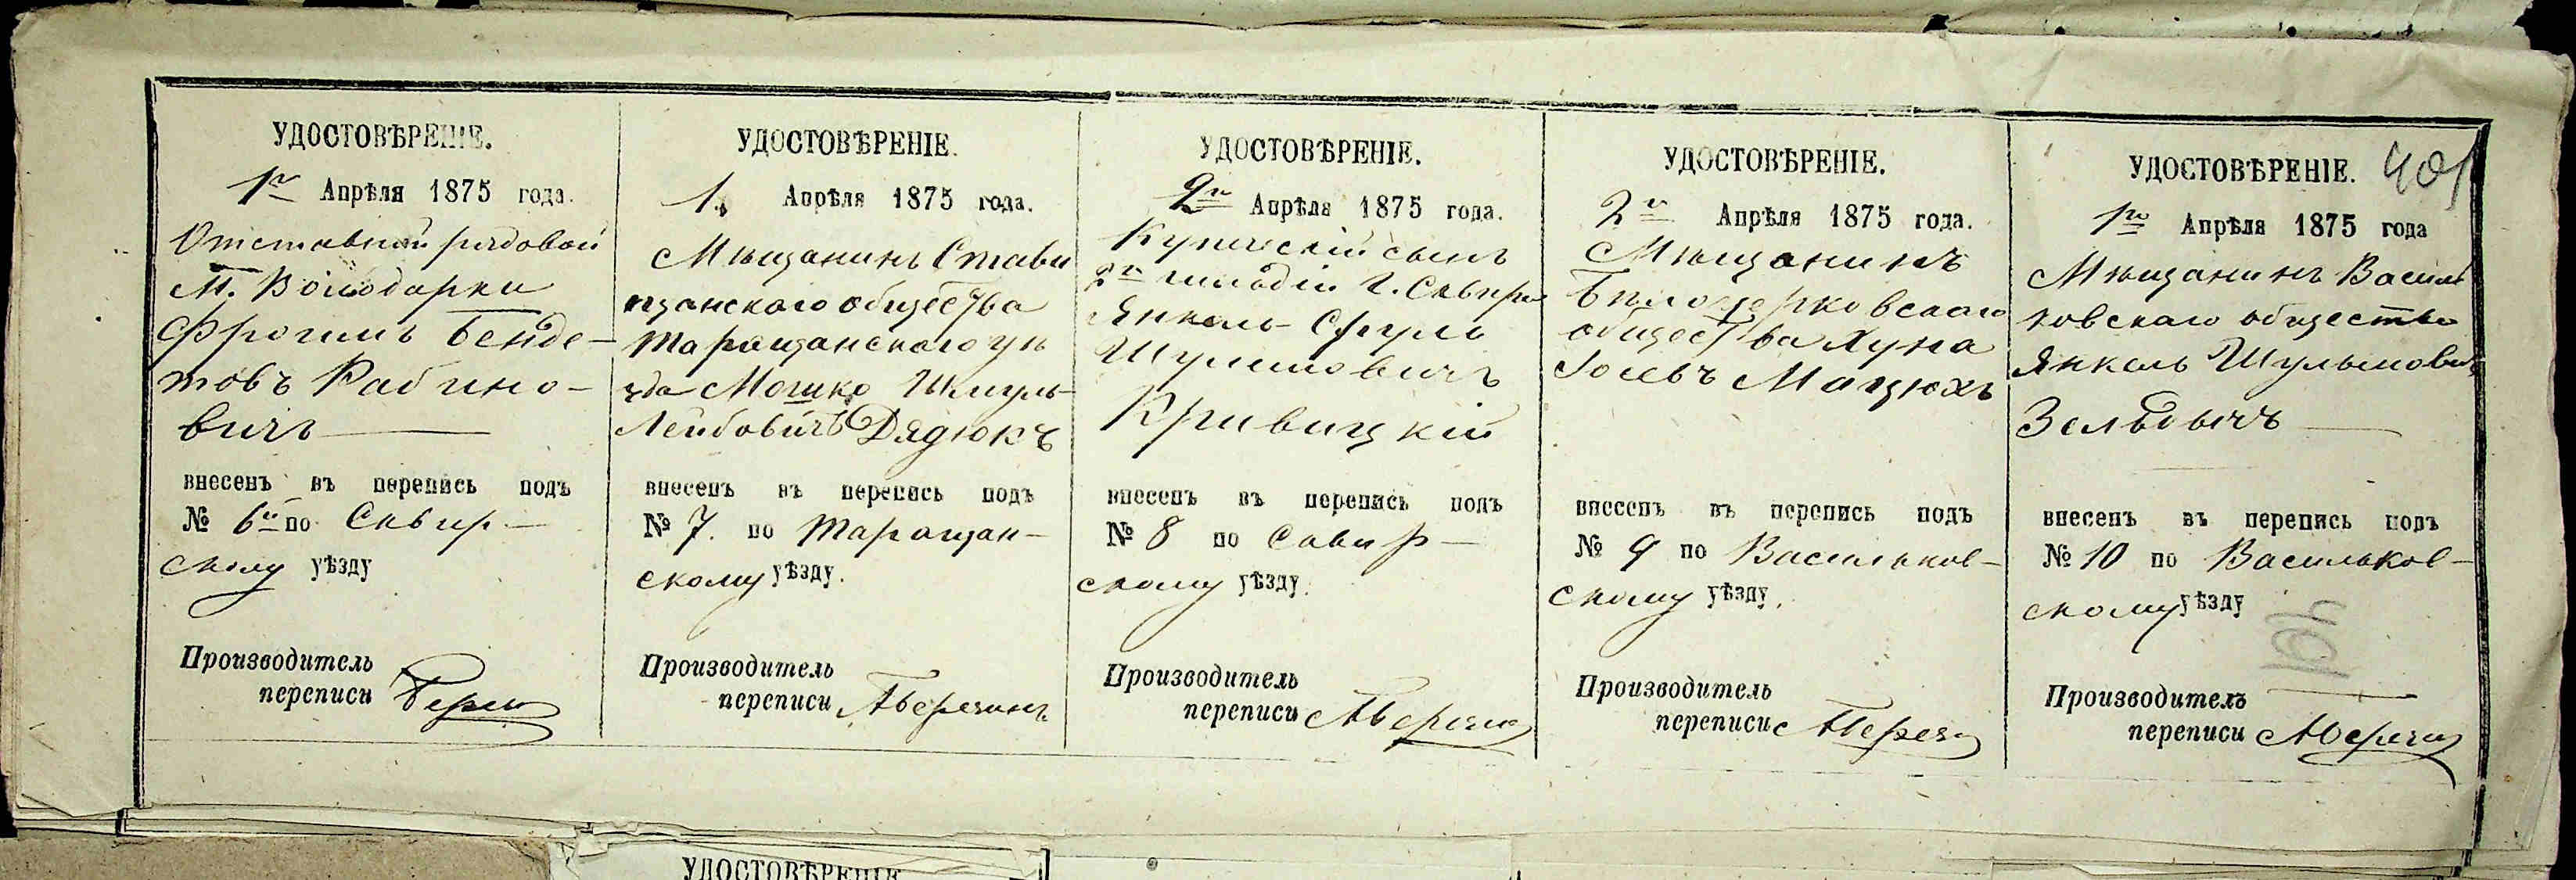 УДОСТОВѢРЕНІЕ.
1го Апрѣля 1875 года.
Отставный рядовой
М. Володарки
Фроимъ Бенде-
товъ Рабино-
вичъ
внесенъ въ перепись подъ
№ 6й по Сквир-
скому уѣзду
Производитель
переписи
УДОСТОВѢРЕНІЕ.
1. Апрѣля 1875 года.
Мѣщанинъ Стави
щанскаго общества
Таращанскаго уѣ
зда Мошко Шмуль-
Лейбовичъ Дядюкъ
внесенъ въ перепись подъ
№ 7. по Таращан-
скому уѣзду.
Производитель
переписи Аверечинъ
УДОСТОВѢРЕНІЕ.
2го Апрѣля 1875 года.
Купеческій сынъ
2й гильдіи г. Сквиры
Янкель-Сруль
Шулимовичъ
Кривицкій
внесенъ въ перепись подъ
№ 8 по Сквир-
скому уѣзду.
Производитель
переписи
УДОСТОВѢРЕНІЕ.
2го Апрѣля 1875 года.
Мѣщанинъ
Бѣлоцерковскаго
общества Хуна
Іосевъ Мацюхъ
внесенъ въ перепись подъ
№ 9 по Васильков-
скому уѣзду.
Производитель
переписи
УДОСТОВѢРЕНІЕ. 401
1го Апрѣля 1875 года
Мѣщанинъ Василь
ковскаго общества
Янкель Шульмовичъ
внесенъ въ перепись подъ
№ 10 по Васильков-
скому уѣзду
Производитель
переписи
УДОСТОВѢРЕНІЕ